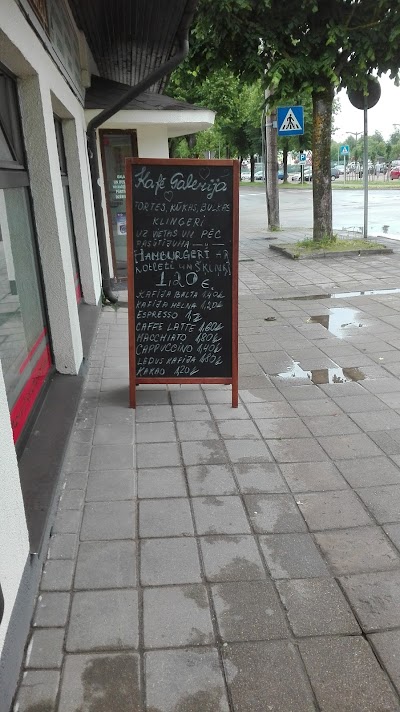 Kafé Galerija
TORTES, KŪKAS, BULKAS
KLINĢERI
UZ VIETAS UN PĒC
PASŪTĪJUMA
HAMBURGERI -
KOTLETI UN ŠĶIŅĶI
1,20 €
KAFIJA BALTA 1,40
KAFIJA MELNA 1,20
ESPRESSO 1
CAFFE LATTE 1,60
MACCHIATO 1,80
CAPPUCCINO 1,40
LEDUS KAFIJA 1,50
KAKAO 1,20